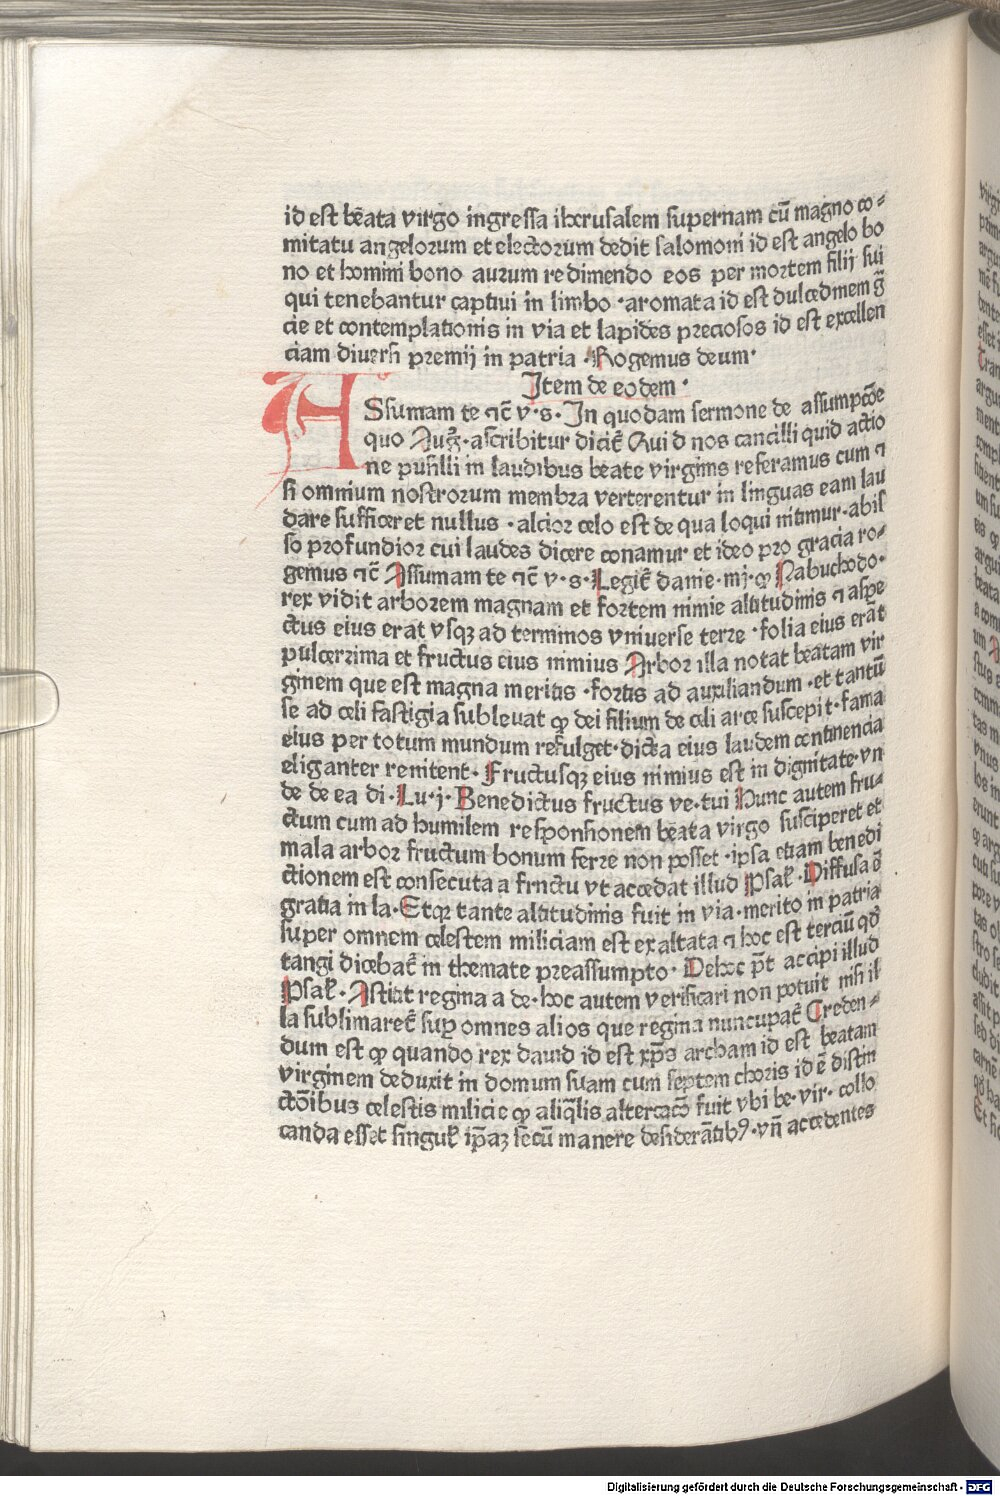 id est bēata virgo ingressa iherusalem supernam cū magno co⸗
mitatu angelorum et electorum dedit salomoni id est angelo bo
no et homini bono aurum redimendo eos per mortem filij sui
qui tenebantur captiui in limbo ·aromata id est dulcedinem gr̄
cie et contemplationis in via et lapides preciosos id est excellen
ciam diuersi premij in patria ·Rogemus deum·
Item de eodem ·
ASsumam te ⁊c̄ v·s· In quodam sermone de assumpcōe
quo Auḡ·ascribitur dicit̄ Quid nos cancilli quid actio
ne pusilli in laudibus beate virginis referamus cum ⁊
si omnium nostrorum membra verterentur in linguas eam lau
dare sufficeret nullus ·alcior celo est de qua loqui nitimur·abis
so profundior cui laudes dicere conamur et ideo pro gracia ro⸗
gemus ⁊c̄ Assumam te ⁊c̄ v·s·Legit̄ danie·iiij·ꝙ Nabuchodo·
rex vidit arborem magnam et fortem nimie altitudinis ⁊ aspe
ctus eius erat vsqꝫ ad terminos vniuerse terre ·folia eius erāt
pulcerrima et fructus eius nimius Arbor illa notat beatam vir
ginem que est magna meritis ·fortis ad auxiliandum ·et tantū
se ad celi fastigia subleuat ꝙ dei filium de celi arce suscepit·fama
eius per totum mundum refulget·dicta eius laudem continencia
eliganter renitent· Fructusqꝫ eius nimius est in dignitate·vn
de de ea di·Lu·j·Benedictus fructus ve·tui Hunc autem fru⸗
ctum cum ad humilem responsionem beata virgo susciperet et
mala arbor fructum bonum ferre non posset ·ipsa etiam benedi
ctionem est consecuta a frnctu vt accedat illud Psal̄·Diffusa ē
gratia in la·Etqꝫ tante altitudinis fuit in via·merito in patria
super omnem celestem miliciam est exaltata ⁊ hoc est terciū qd̄
tangi dicebat̄ in themate preassumpto· Dehoc p̄t accipi illud
Psal̄·Astitit regina a de·hoc autem verificari non potuit nisi il
la sublimaret̄ sup̄ omnes alios que regina nuncupat̄ Creden⸗
dum est ꝙ quando rex dauid id est xp̄s archam id est beatam
virginem deduxit in domum suam cum septem choris id ē distin
ctōibus celestis milicie ꝙ aliq̄lis altercacō fuit vbi be·vir· collo
canda esset singul̄ ip̄aꝫ secū manere desiderātibꝰ·vn̄ accedentes
Digitalisierung gefördert durch die Deutsche Forschungsgemeinschaft - DFG